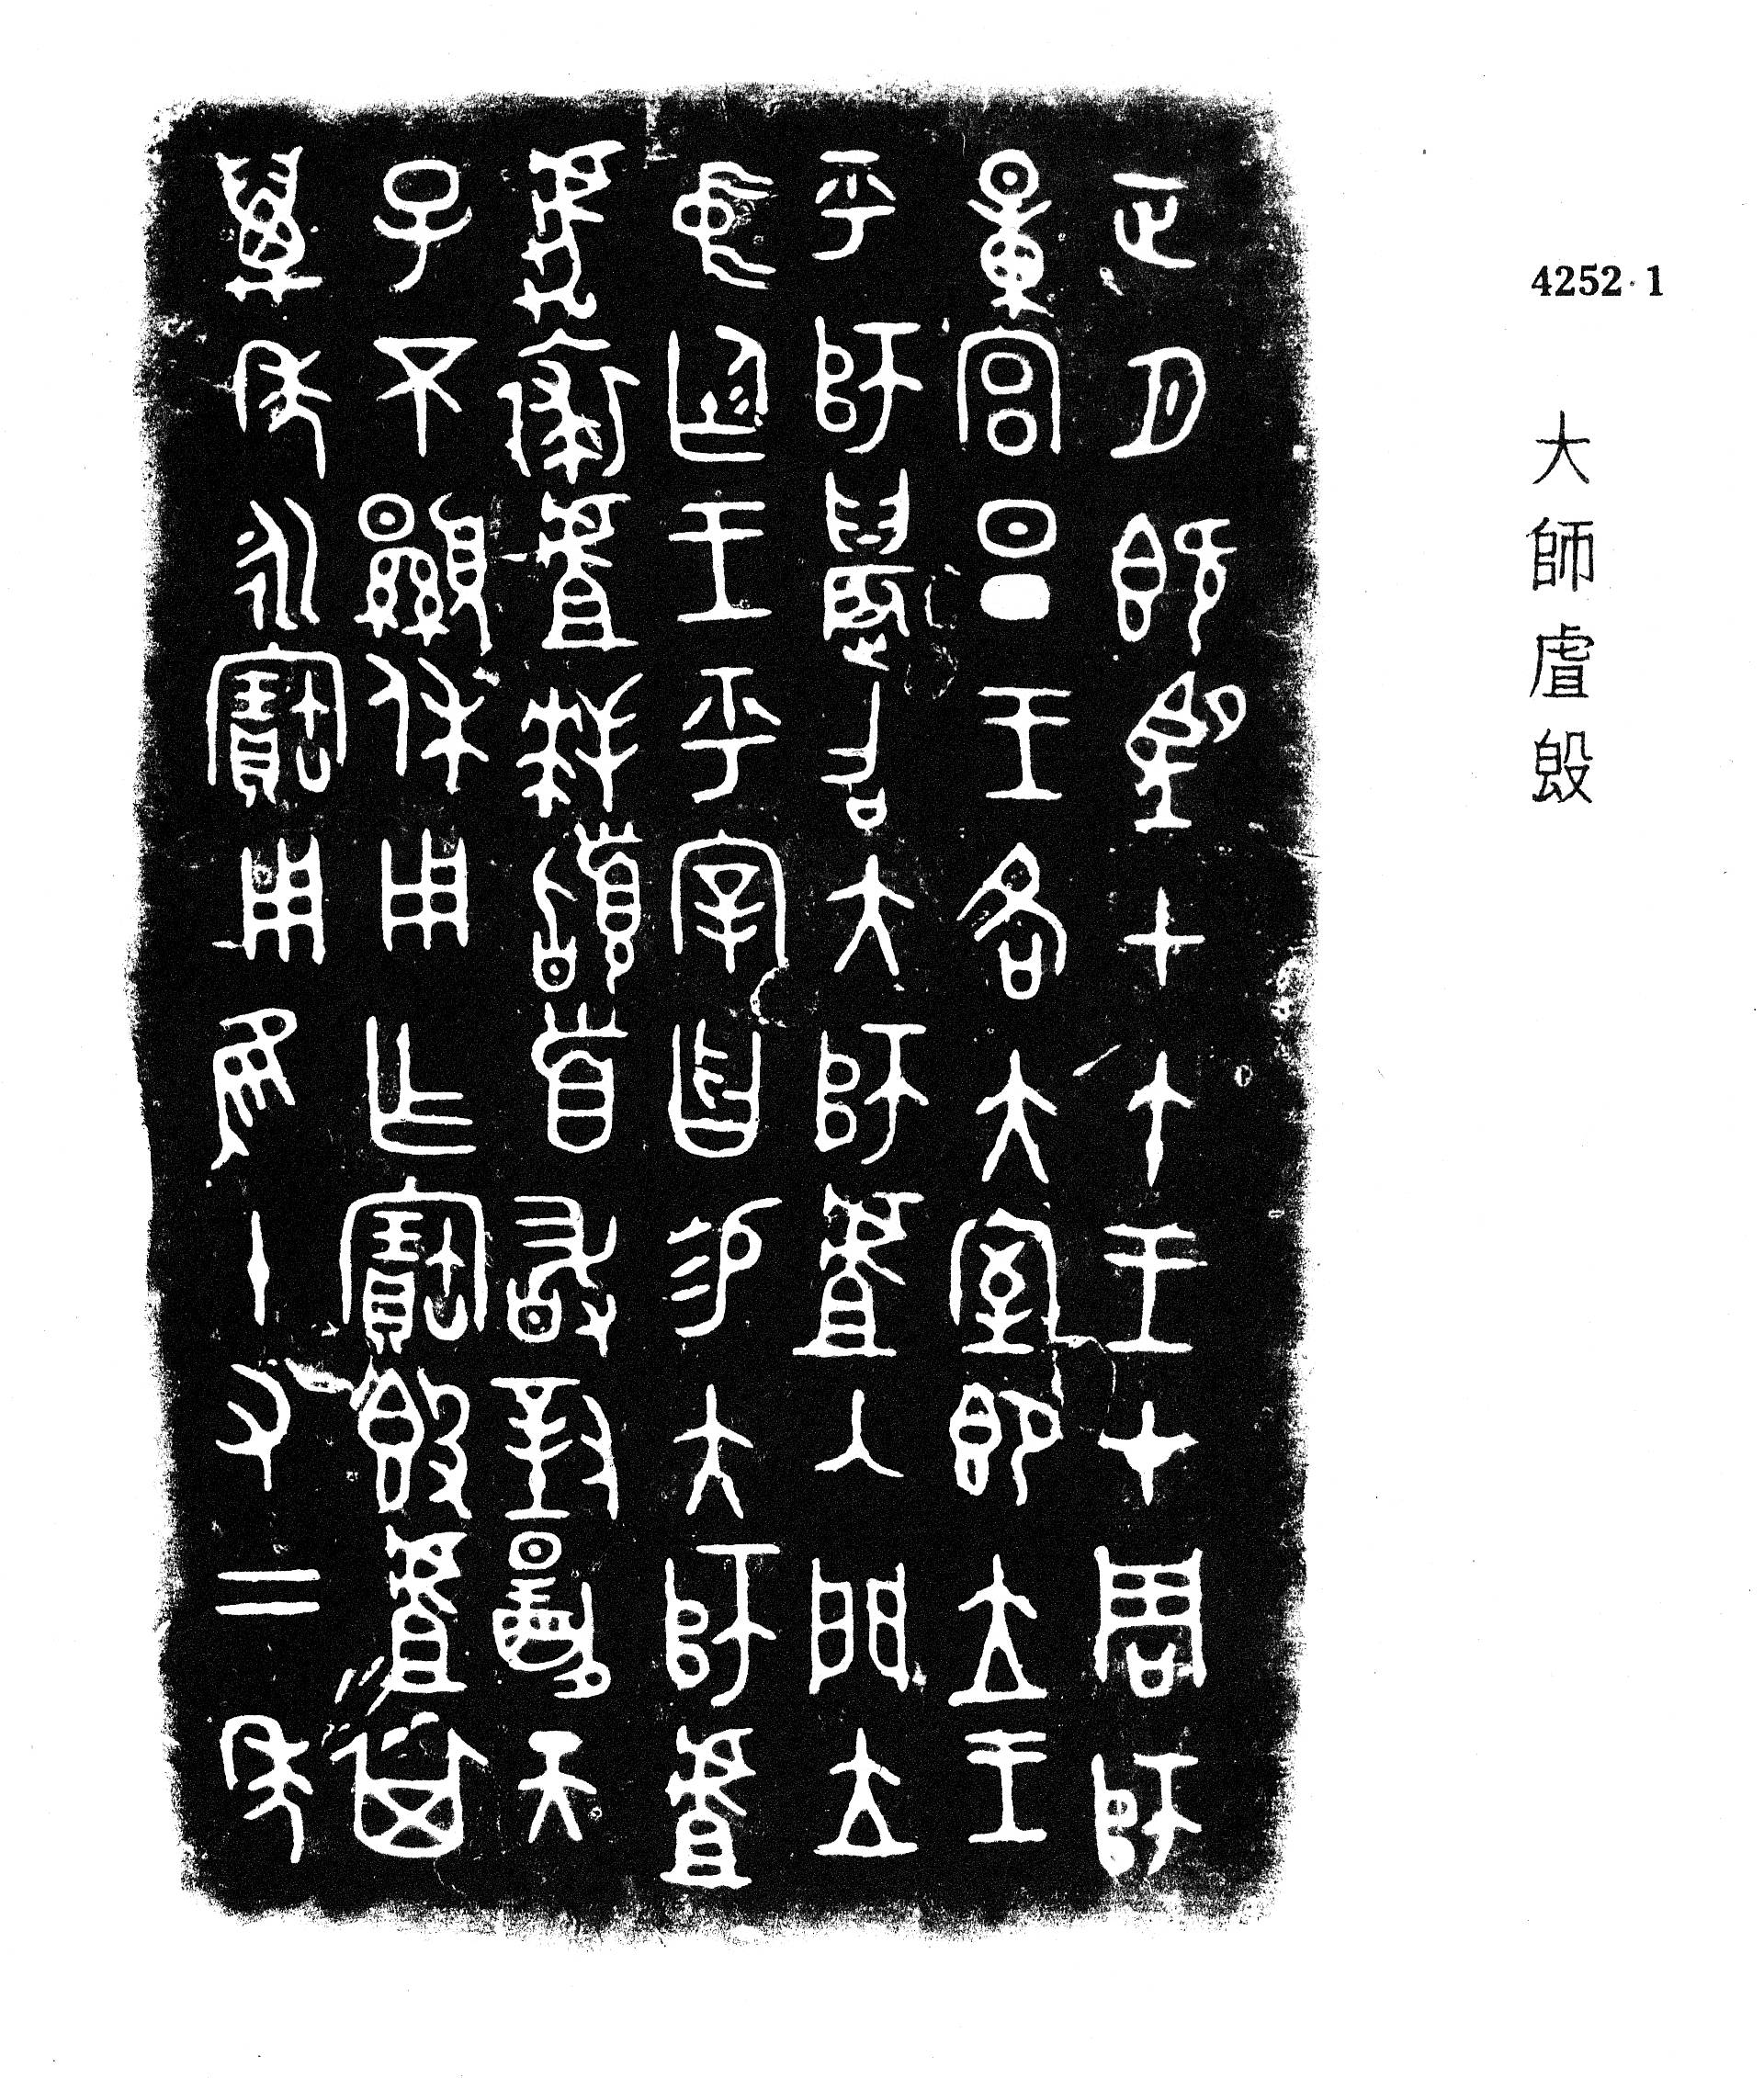 4252·1
大師虘𣪘
正月既望甲午王才周師
量宮旦王各大室即立王
乎師晨召大師虘入門立
中廷王乎宰曶易大師虘
虎裘虘拜𩒨首敢對𩫨天
子不顯休用乍寶𣪘虘其
萬年永寶用隹十又二年